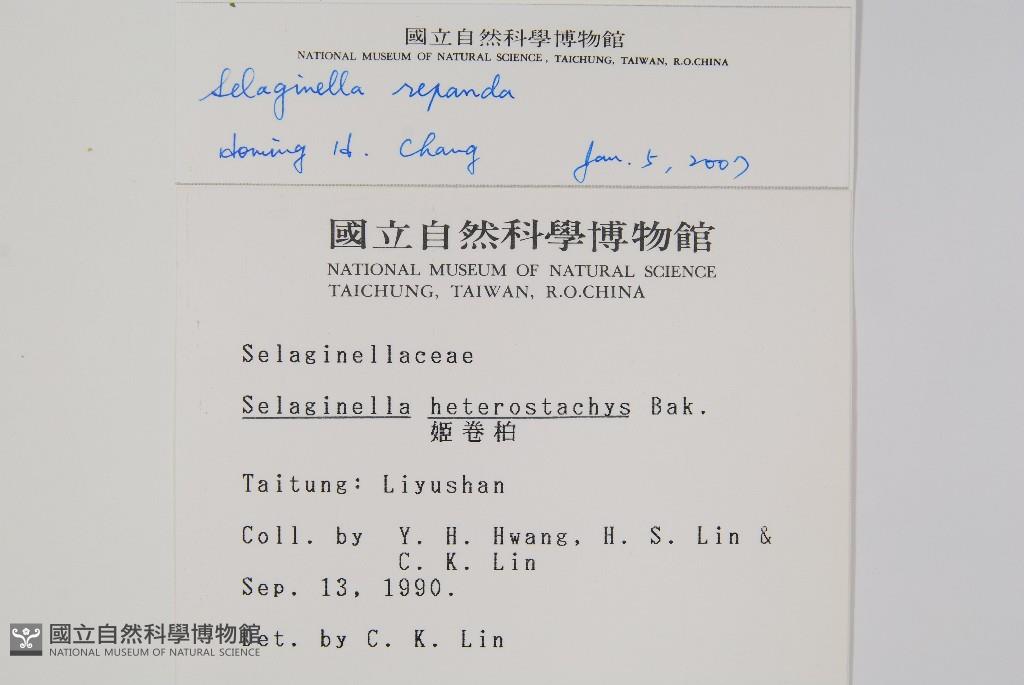 國立自然科學博物館
NATIONAL MUSEUM OF NATURAL SCIENCE, TAICHUNG, TAIWAN, R.O.CHINA
Selaginella repanda
Homing H. Chang Jan. 5, 2007
國立自然科學博物館
NATIONAL MUSEUM OF NATURAL SCIENCE
TAICHUNG, TAIWAN, R.O.CHINA
Selaginellaceae
Selaginella heterostachys Bak.
姬卷柏
Taitung: Liyushan
Coll. by Y. H. Hwang, H. S. Lin &
C. K. Lin
Sep. 13, 1990.
Det. by C. K. Lin
國立自然科學博物館
NATIONAL MUSEUM OF NATURAL SCIENCE